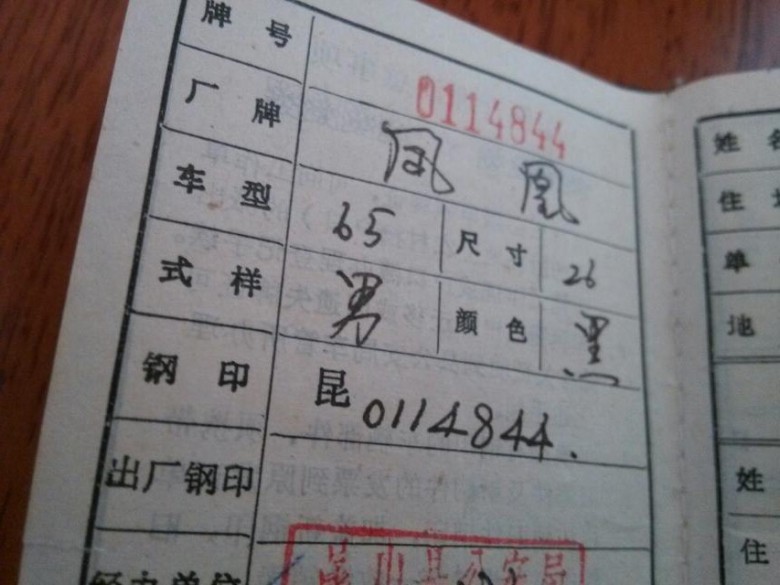 牌号 0114844
厂牌 凤凰
车型 65 尺寸 26
式样 男 颜色 黑
钢印 昆 0114844.
出厂钢印
姓名
住
单
地
姓
住